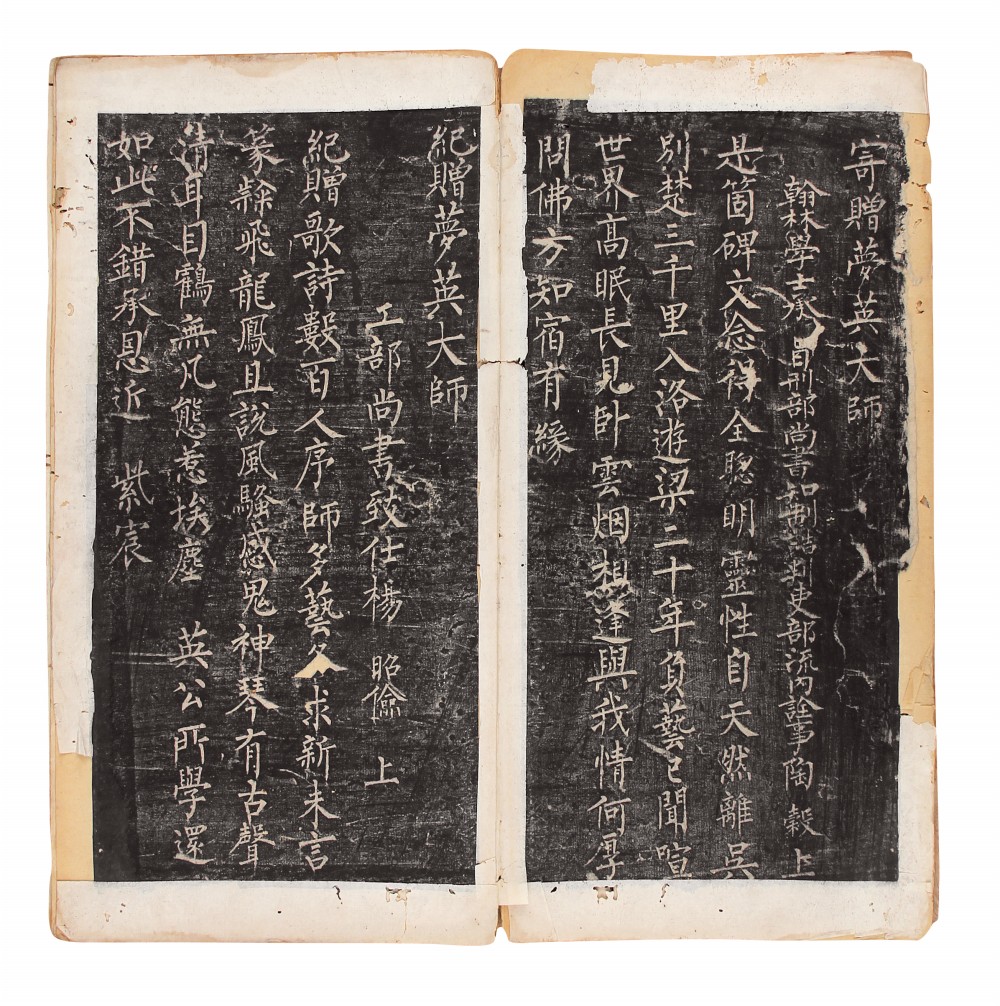 寄贈夢英大師
翰林學士承旨刑部尚書知制誥判吏部流內銓事陶穀上
是箇碑文念得全聦明靈性自天然離吳
別楚三千里入洛遊梁二十年負藝已聞喧
世界高眠長見卧雲烟相逢與我情何厚
問佛方知宿有緣
紀贈夢英大師
工部尚書致仕楊 昭儉 上
紀贈歌詩數百人序師多藝多求新未言
篆隸飛龍鳳且說風騷感鬼神琴有古聲
清耳目鶴無凡態惹埃塵 英公所學還
如此不錯承恩近 紫宸